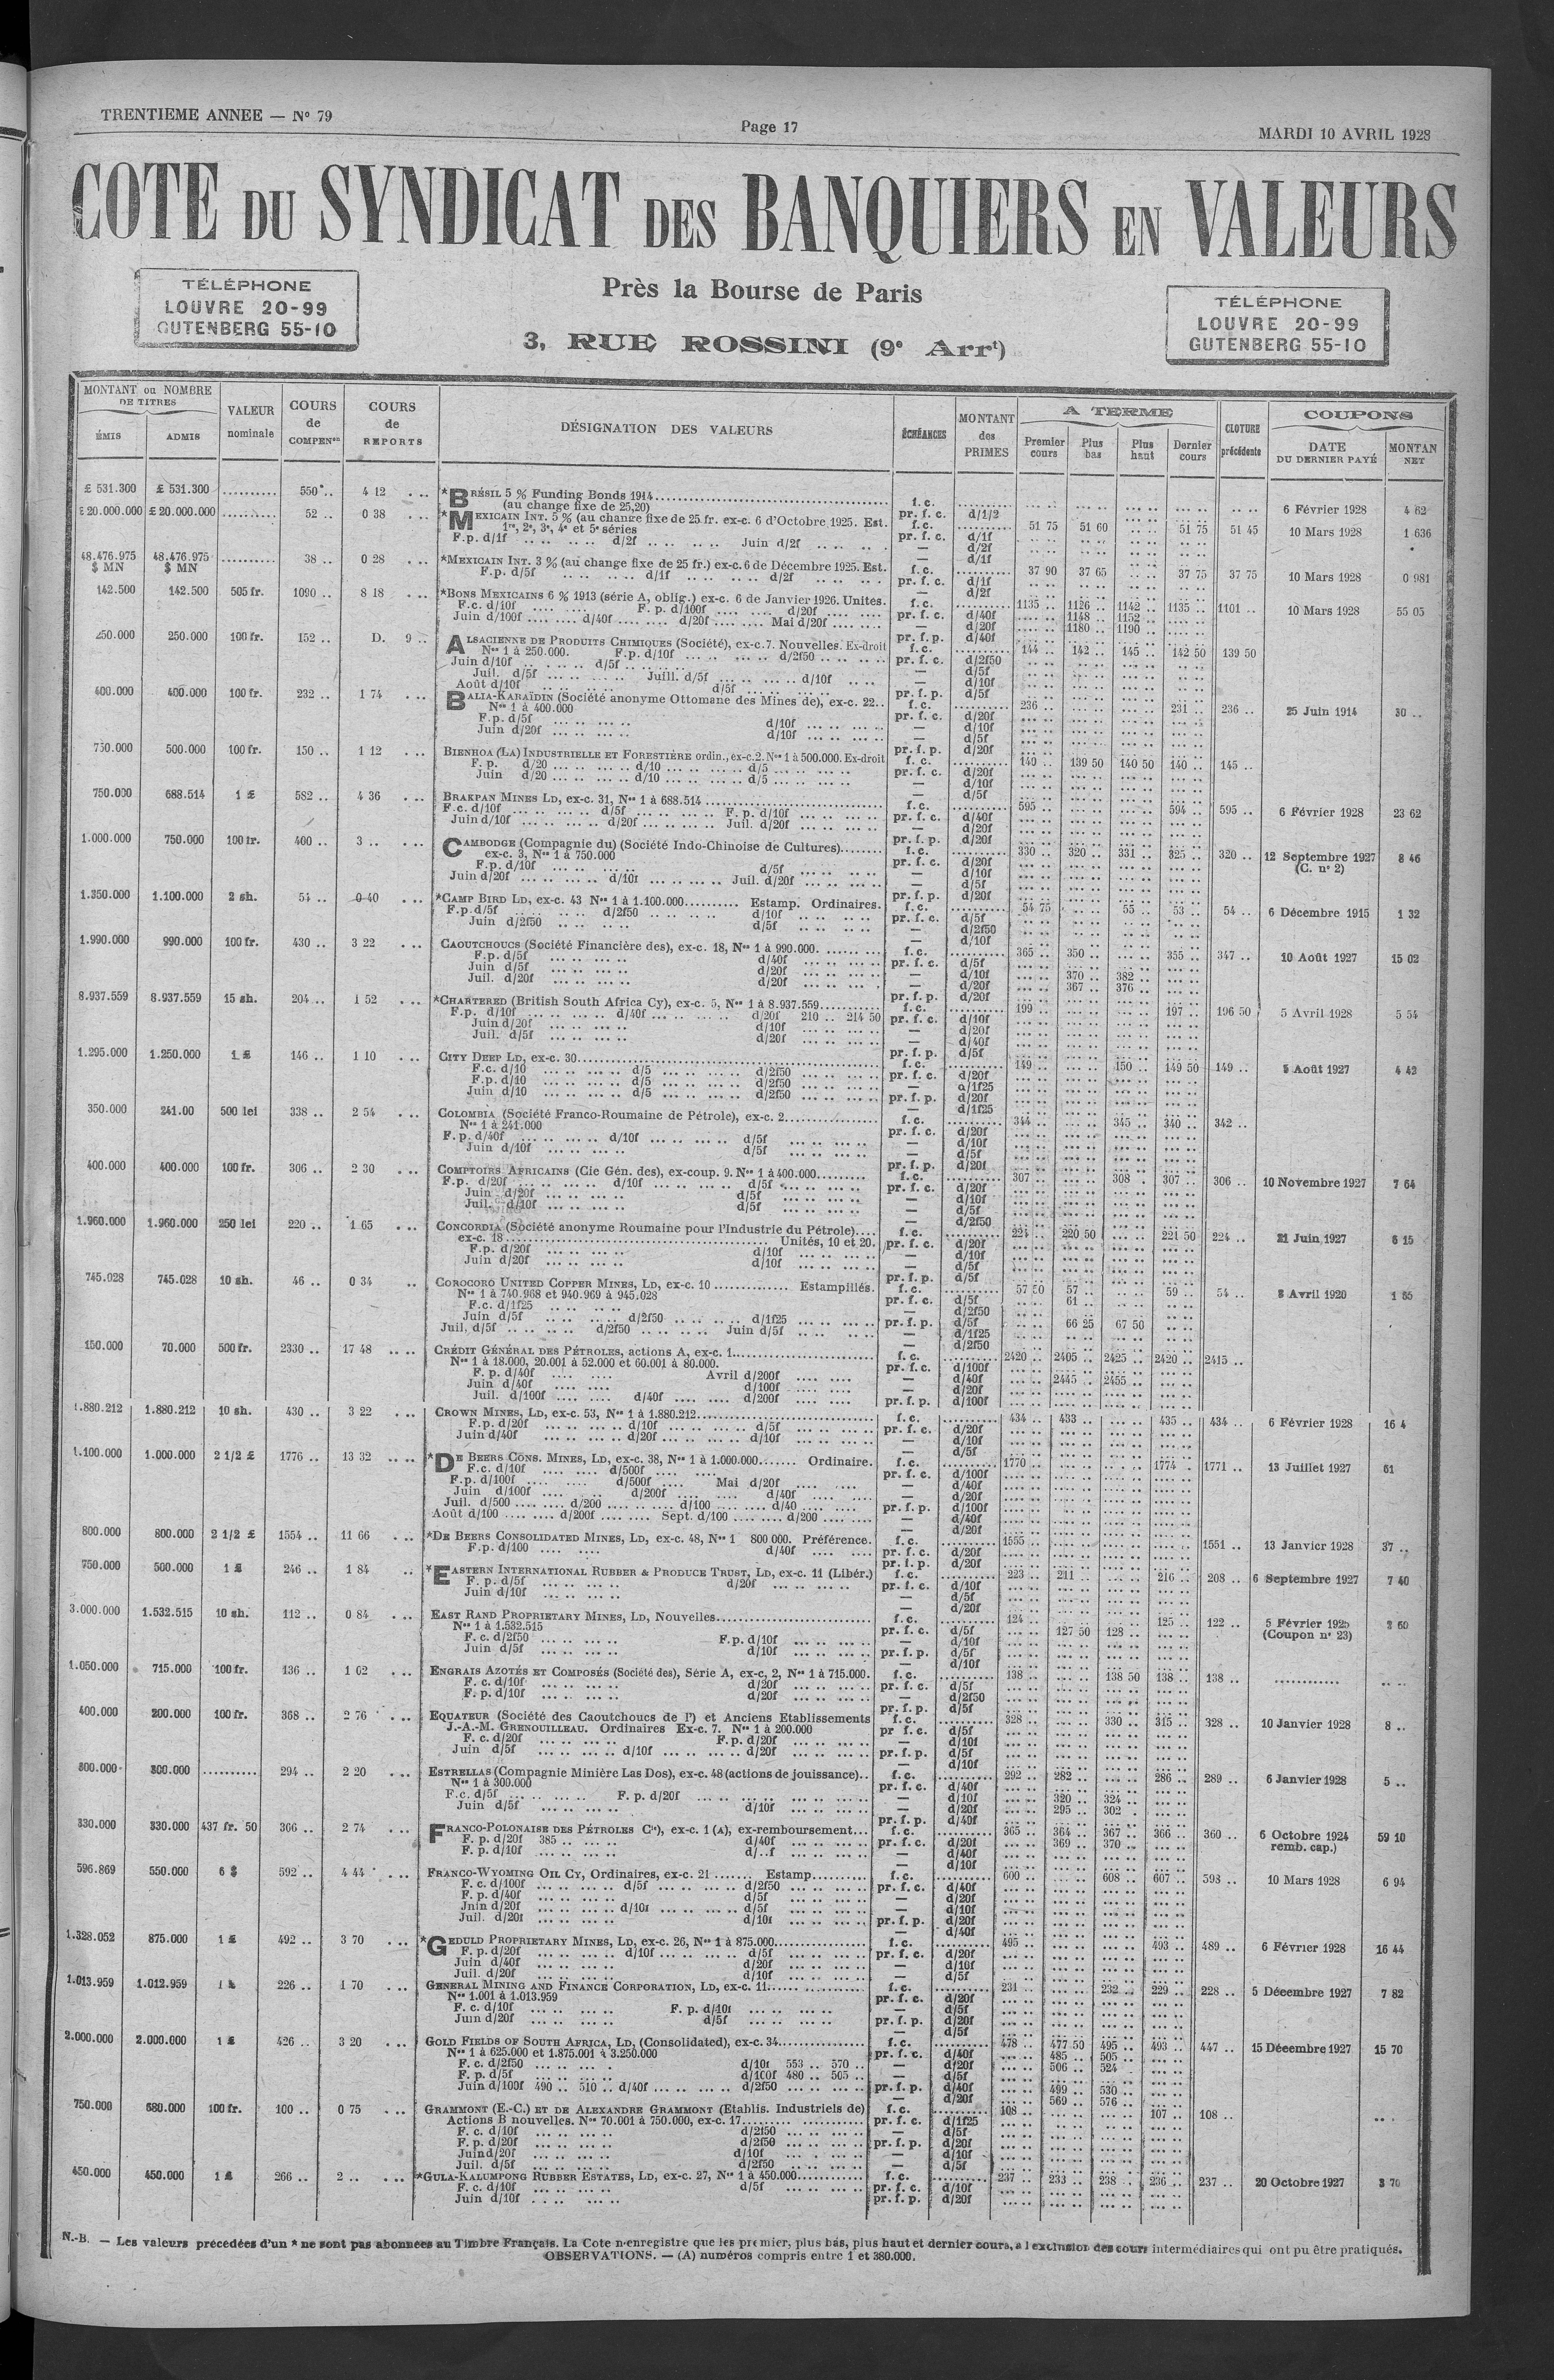 TRENTIEME ANNEE — Nº 79
Page 17
MARDI 10 AVRIL 1928
COTE DU SYNDICAT DES BANQUIERS EN VALEURS
TÉLÉPHONE
LOUVRE 20-99
GUTENBERG 55-10
Près la Bourse de Paris
3, RUE ROSSINI (9e Arrt)
TÉLÉPHONE
LOUVRE 20-99
GUTENBERG 55-10
MONTANT ou NOMBRE DE TITRES
ÉMIS ADMIS
VALEUR nominale
COURS de COMPENon
COURS de REPORTS
DÉSIGNATION DES VALEURS
ÉCHÉANCES
MONTANT des PRIMES
A TERME
Premier cours Plus bas Plus haut Dernier cours
CLOTURE précédente
COUPONS
DATE DU DERNIER PAYÉ MONTAN NET
£ 531.300 £ 531.300 .......... 550 .. 4 12 *BRÉSIL 5 % Funding Bonds 1914 f. c. 6 Février 1928 4 62
(au change fixe de 25,20) pr. f. c. d/1/2
£ 20.000.000 £ 20.000.000 .......... 52 .. 0 38 *MEXICAIN INT. 5 % (au change fixe de 25 fr. ex-c. 6 d'Octobre 1925. Est. f. c. 51 75 51 60 51 75 51 45 10 Mars 1928 1 636
1re, 2e, 3e, 4e et 5e séries pr. f. c. d/1f
F.p. d/1f d/2f Juin d/2f — d/2f
48.476.975 $ MN 48.476.975 $ MN 38 .. 0 28 *MEXICAIN INT. 3 % (au change fixe de 25 fr.) ex-c. 6 de Décembre 1925. Est. f. c. 37 90 37 65 37 75 37 75 10 Mars 1928 0 981
F.p. d/5f d/1f d/2f pr. f. c. d/1f
142.500 142.500 505 fr. 1090 .. 8 18 *BONS MEXICAINS 6 % 1913 (série A, oblig.) ex-c. 6 de Janvier 1926. Unités. f. c. 1135 .. 1126 .. 1142 .. 1135 .. 1101 .. 10 Mars 1928 55 05
F.c. d/10f F. p. d/100f d/20f pr. f. c. d/40f 1148 .. 1152 ..
Juin d/100f d/40f d/20f Mai d/20f — d/20f 1180 .. 1190 ..
250.000 250.000 100 fr. 152 .. D. 9 .. ALSACIENNE DE PRODUITS CHIMIQUES (Société), ex-c. 7. Nouvelles. Ex-droit f. c. 144 .. 142 .. 145 .. 142 50 139 50
Nos 1 à 250.000. F.p. d/10f d/2f50 pr. f. c. d/2f50
Juin d/10f d/5f — d/5f
Juil. d/5f Juill. d/5f d/10f — d/10f
Août d/10f d/5f pr. f. p. d/5f
400.000 400.000 100 fr. 232 .. 1 74 BALIA-KARAÏDIN (Société anonyme Ottomane des Mines de), ex-c. 22.. f. c. 236 .. 231 .. 236 .. 25 Juin 1914 30 ..
Nos 1 à 400.000 pr. f. c. d/20f
F.p. d/5f d/10f — d/10f
Juin d/20f d/10f — d/5f
750.000 500.000 100 fr. 150 .. 1 12 BIENHOA (LA) INDUSTRIELLE ET FORESTIÈRE ordin., ex-c. 2. Nos 1 à 500.000. Ex-droit f. c. 140 .. 139 50 140 50 140 .. 145 ..
F. p. d/20 d/10 d/5 pr. f. c. d/20f
Juin d/20 d/10 d/5 — d/10f
750.000 688.514 1 £ 582 .. 4 36 BRAKPAN MINES LD, ex-c. 31, Nos 1 à 688.514 f. c. 595 .. 594 .. 595 .. 6 Février 1928 23 62
F.c. d/10f d/5f F. p. d/10f pr. f. c. d/40f
Juin d/10f d/20f Juil. d/20f — d/20f
1.000.000 750.000 100 fr. 400 .. 3 .. CAMBODGE (Compagnie du) (Société Indo-Chinoise de Cultures) f. c. 330 .. 320 .. 331 .. 325 .. 320 .. 12 Septembre 1927 (C. nº 2) 8 46
ex-c. 3, Nos 1 à 750.000 pr. f. c. d/20f
F.p. d/10f d/5f — d/10f
Juin d/20f d/10f Juil. d/20f — d/5f
1.350.000 1.100.000 2 sh. 54 .. 0 40 *CAMP BIRD LD, ex-c. 43 Nos 1 à 1.100.000 Estamp. Ordinaires. f. c. 54 75 55 .. 53 .. 54 .. 6 Décembre 1915 1 32
F.p. d/5f d/2f50 d/10f pr. f. c. d/5f
Juin d/2f50 d/5f — d/2f50
1.990.000 990.000 100 fr. 430 .. 3 22 CAOUTCHOUCS (Société Financière des), ex-c. 18, Nos 1 à 990.000. f. c. 365 .. 350 .. 355 .. 347 .. 10 Août 1927 15 02
F.p. d/5f d/40f pr. f. c. d/5f
Juin d/5f d/20f — d/10f 370 .. 382 ..
Juil. d/20f d/20f — d/20f 367 .. 376 ..
8.937.559 8.937.559 15 sh. 204 .. 1 52 *CHARTERED (British South Africa Cy), ex-c. 5, Nos 1 à 8.937.559 f. c. 199 .. 197 .. 196 50 5 Avril 1928 5 54
F.p. d/10f d/40f d/20f 210 .. 214 50 pr. f. c. d/10f
Juin d/20f d/10f — d/20f
Juil. d/5f d/20f — d/40f
1.295.000 1.250.000 1 £ 146 .. 1 10 CITY DEEP LD, ex-c. 30 f. c. 149 .. 150 .. 149 50 149 .. 5 Août 1927 4 42
F.c. d/10 d/5 d/2f50 pr. f. c. d/20f
F.p. d/10 d/5 d/2f50 — d/1f25
Juin d/10 d/5 d/2f50 pr. f. p. d/20f
350.000 241.00 500 lei 338 .. 2 54 COLOMBIA (Société Franco-Roumaine de Pétrole), ex-c. 2 f. c. 344 .. 345 .. 340 .. 342 ..
Nos 1 à 241.000 pr. f. c. d/20f
F. p. d/40f d/10f d/5f — d/10f
Juin d/10f d/5f — d/5f
400.000 400.000 100 fr. 306 .. 2 30 COMPTOIRS AFRICAINS (Cie Gén. des), ex-coup. 9. Nos 1 à 400.000 f. c. 307 .. 308 . 307 .. 306 .. 10 Novembre 1927 7 64
F.p. d/20f d/10f d/5f pr. f. c. d/20f
Juin d/20f d/5f — d/10f
Juil. d/10f d/5f — d/5f
1.960.000 1.960.000 250 lei 220 .. 1 65 CONCORDIA (Société anonyme Roumaine pour l'Industrie du Pétrole) f. c. 224 .. 220 50 221 50 224 .. 21 Juin 1927 6 15
ex-c. 18 Unités, 10 et 20. pr. f. c. d/20f
F.p. d/20f d/10f — d/10f
Juin d/20f d/10f — d/5f
745.028 745.028 10 sh. 46 .. 0 34 COROCORO UNITED COPPER MINES, LD, ex-c. 10 Estampillés. f. c. 57 50 57 .. 59 .. 54 .. 8 Avril 1920 1 65
Nos 1 à 740.968 et 940.969 à 945.028 pr. f. c. d/5f 61 ..
F.c. d/1f25 — d/2f50
Juin d/5f d/2f50 d/1f25 pr. f. p. d/5f 66 25 67 50
Juil. d/5f d/2f50 Juin d/5f — d/1f25
150.000 70.000 500 fr. 2330 .. 17 48 CRÉDIT GÉNÉRAL DES PÉTROLES, actions A, ex-c. 1 f. c. 2420 .. 2405 .. 2425 .. 2420 .. 2415 ..
Nos 1 à 18.000, 20.001 à 52.000 et 60.001 à 80.000. pr. f. c. d/100f
F. p. d/40f Avril d/200f — d/40f 2445 .. 2455 ..
Juin d/40f d/100f — d/20f
Juil. d/100f d/40f d/200f pr. f. p. d/100f
1.880.212 1.880.212 10 sh. 430 .. 3 22 CROWN MINES, LD, ex-c. 53, Nos 1 à 1.880.212 f. c. 434 .. 433 .. 435 .. 434 .. 6 Février 1928 16 4
F.p. d/20f d/10f d/5f pr. f. c. d/20f
Juin d/40f d/20f d/10f — d/10f
1.100.000 1.000.000 2 1/2 £ 1776 .. 13 32 *DE BEERS CONS. MINES, LD, ex-c. 38, Nos 1 à 1.000.000 Ordinaire. f. c. 1770 .. 1774 .. 1771 .. 13 Juillet 1927 61
F.c. d/10f d/500f pr. f. c. d/100f
F.p. d/100f d/500f Mai d/20f — d/40f
Juin d/100f d/200f d/40f — d/20f
Juil. d/500 d/200 d/100 d/40 pr. f. p. d/100f
Août d/100 d/200f Sept. d/100 d/200 — d/40f
800.000 800.000 2 1/2 £ 1554 .. 11 66 *DE BEERS CONSOLIDATED MINES, LD, ex-c. 48, Nos 1 800 000. Préférence. f. c. 1555 .. 1551 .. 13 Janvier 1928 37 ..
F.p. d/100 d/40f pr. f. c. d/20f
750.000 500.000 1 £ 246 .. 1 84 *EASTERN INTERNATIONAL RUBBER & PRODUCE TRUST, LD, ex-c. 11 (Libér.) f. c. 223 .. 211 .. 216 .. 208 .. 6 Septembre 1927 7 40
F. p. d/5f d/20f pr. f. c. d/10f
Juin d/10f — d/5f
3.000.000 1.532.515 10 sh. 112 .. 0 84 EAST RAND PROPRIETARY MINES, LD, Nouvelles f. c. 124 .. 125 .. 122 .. 5 Février 1925 (Coupon nº 23) 3 60
Nos 1 à 1.532.515 pr. f. c. d/5f 127 50 128 ..
F. c. d/2f50 F.p. d/10f — d/10f
Juin d/5f d/10f pr. f. p. d/5f
1.050.000 715.000 100 fr. 136 .. 1 02 ENGRAIS AZOTÉS ET COMPOSÉS (Société des), Série A, ex-c, 2, Nos 1 à 715.000. f. c. 138 .. 138 50 138 .. 138 ..
F. c. d/10f d/20f pr. f. c. d/5f
F. p. d/10f d/20f — d/2f50
400.000 200.000 100 fr. 368 .. 2 76 EQUATEUR (Société des Caoutchoucs de l') et Anciens Etablissements f. c. 328 .. 330 .. 315 .. 328 .. 10 Janvier 1928 8 ..
J.-A.-M. GRENOUILLEAU. Ordinaires Ex-c. 7. Nos 1 à 200.000 pr f. c. d/5f
F. c. d/20f F. p. d/20f — d/10f
Juin d/5f d/10f d/20f pr. f. p. d/5f
300.000 300.000 .......... 294 .. 2 20 ESTRELLAS (Compagnie Minière Las Dos), ex-c. 48 (actions de jouissance) f. c. 292 .. 282 .. 286 .. 289 .. 6 Janvier 1928 5 ..
Nos 1 à 300.000 pr. f. c. d/40f
F.c. d/5f F. p. d/20f — d/10f 320 .. 324 ..
Juin d/5f d/10f — d/20f 295 .. 302 .
330.000 330.000 437 fr. 50 366 .. 2 74 FRANCO-POLONAISE DES PÉTROLES Cie), ex-c. 1 (A), ex-remboursement f. c. 365 .. 364 .. 367 .. 366 .. 360 .. 6 Octobre 1924 remb. cap.) 59 10
F. p. d/20f 385 .. d/40f pr. f. c. d/20f 369 .. 370 ..
F. p. d/10f d/..f — d/40f
596.869 550.000 6 $ 592 .. 4 44 FRANCO-WYOMING OIL CY, Ordinaires, ex-c. 21 Estamp. f. c. 600 .. 608 .. 607 .. 593 .. 10 Mars 1928 6 94
F. c. d/100f d/5f d/2f50 pr. f. c. d/40f
F. p. d/40f d/5f — d/20f
Juin d/20f d/10f d/5f — d/10f
Juil. d/20f d/10f pr. f. p. d/20f
1.328.052 875.000 1 £ 492 .. 3 70 *GEDULD PROPRIETARY MINES, LD, ex-c. 26, Nos 1 à 875.000 f. c. 495 .. 493 .. 489 .. 6 Février 1928 16 44
F. p. d/20f d/10f d/5f pr. f. c. d/20f
Juin d/40f d/20f — d/10f
Juil. d/20f d/10f — d/5f
1.013.959 1.012.959 1 £ 226 .. 1 70 GENERAL MINING AND FINANCE CORPORATION, LD, ex-c. 11 f. c. 231 .. 232 .. 229 .. 228 .. 5 Décembre 1927 7 82
Nos 1.001 à 1.013.959 pr. f. c. d/20f
F. c. d/10f F. p. d/10f — d/5f
Juin d/20f d/5f pr. f. p. d/20f
2.000.000 2.000.000 1 £ 426 .. 3 20 GOLD FIELDS OF SOUTH AFRICA, LD, (Consolidated), ex-c. 34 f. c. 478 .. 477 50 495 .. 493 .. 447 .. 15 Décembre 1927 15 70
Nos 1 à 625.000 et 1.875.001 à 3.250.000 pr. f. c. d/40f 485 .. 505 ..
F. c. d/2f50 d/10f 553 .. 570 .. — d/20f 506 .. 524
F. p. d/5f d/100f 480 .. 505 .. — d/5f
Juin d/100f 490 .. 510 .. d/40f d/2f50 pr. f. p. d/40f 499 .. 530 ..
— d/20f 569 .. 576 ..
750.000 680.000 100 fr. 100 .. 0 75 GRAMMONT (E.-C.) ET DE ALEXANDRE GRAMMONT (Etablis. Industriels de) f. c. 108 .. 107 .. 108 ..
Actions B nouvelles. Nos 70.001 à 750.000, ex-c. 17 pr. f. c. d/1f25
F. c. d/10f d/2f50 — d/5f
F. p. d/20f d/2f50 pr. f. p. d/20f
Juin d/20f d/10f — d/10f
Juil. d/5f d/2f50 — d/5f
450.000 450.000 1 £ 266 .. 2 .. *GULA-KALUMPONG RUBBER ESTATES, LD, ex-c. 27, Nos 1 à 450.000 f. c. 237 .. 233 .. 238 .. 236 .. 237 .. 20 Octobre 1927 3 70
F. c. d/10f d/5f pr. f. c. d/10f
Juin d/10f pr. f. p. d/20f
N.-B. — Les valeurs précédées d'un * ne sont pas abonnées au Timbre Français. La Cote n'enregistre que les premier, plus bas, plus haut et dernier cours, à l'exclusion des cours intermédiaires qui ont pu être pratiqués.
OBSERVATIONS. — (A) numéros compris entre 1 et 380.000.